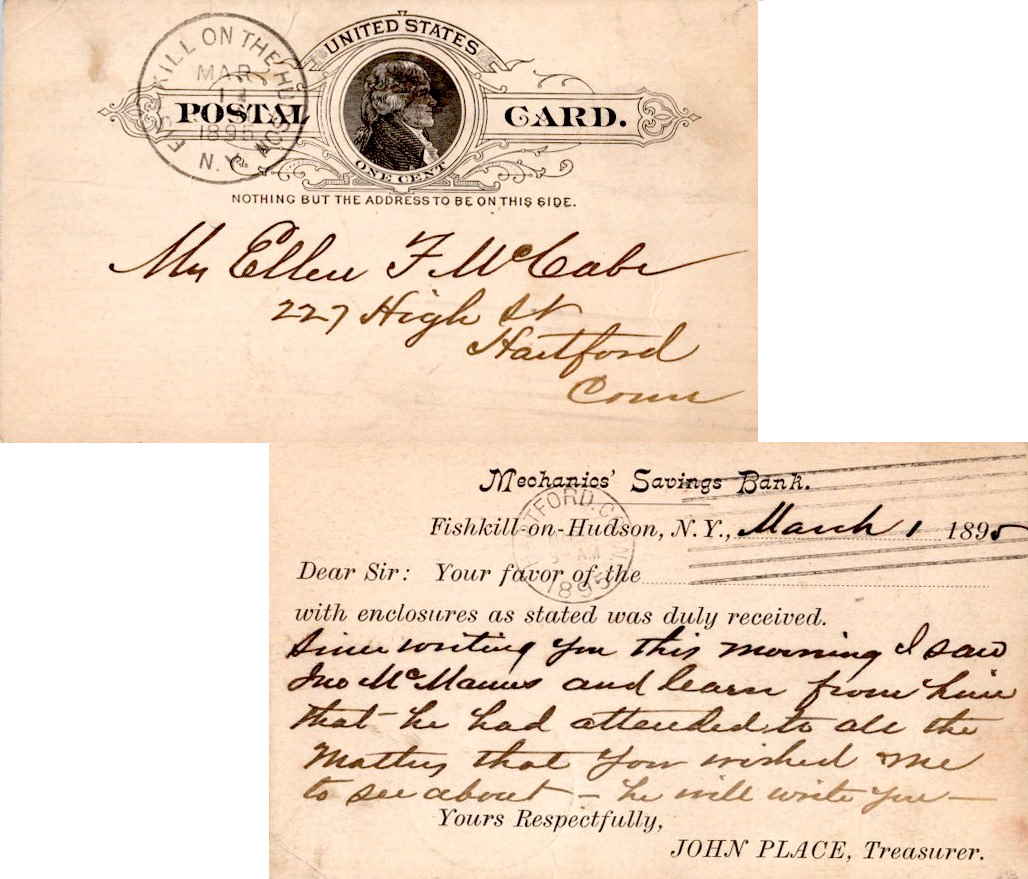 UNITED STATES
POSTAL CARD.
ONE CENT
NOTHING BUT THE ADDRESS TO BE ON THIS SIDE.
FISHKILL ON THE HUDSON
MAR
1
1895
N.Y.
Ellen F McCabe
227 High St
Hartford
Conn
Mechanics' Savings Bank.
Fishkill-on-Hudson, N.Y., March 1 1895
HARTFORD. CONN.
AM
1895
Dear Sir: Your favor of the
with enclosures as stated was duly received.
Since writing you this morning I saw
Jno McManus and learn from him
that he had attended to all the
Matters that you wished me
to see about – he will write you –
Yours Respectfully,
JOHN PLACE, Treasurer.